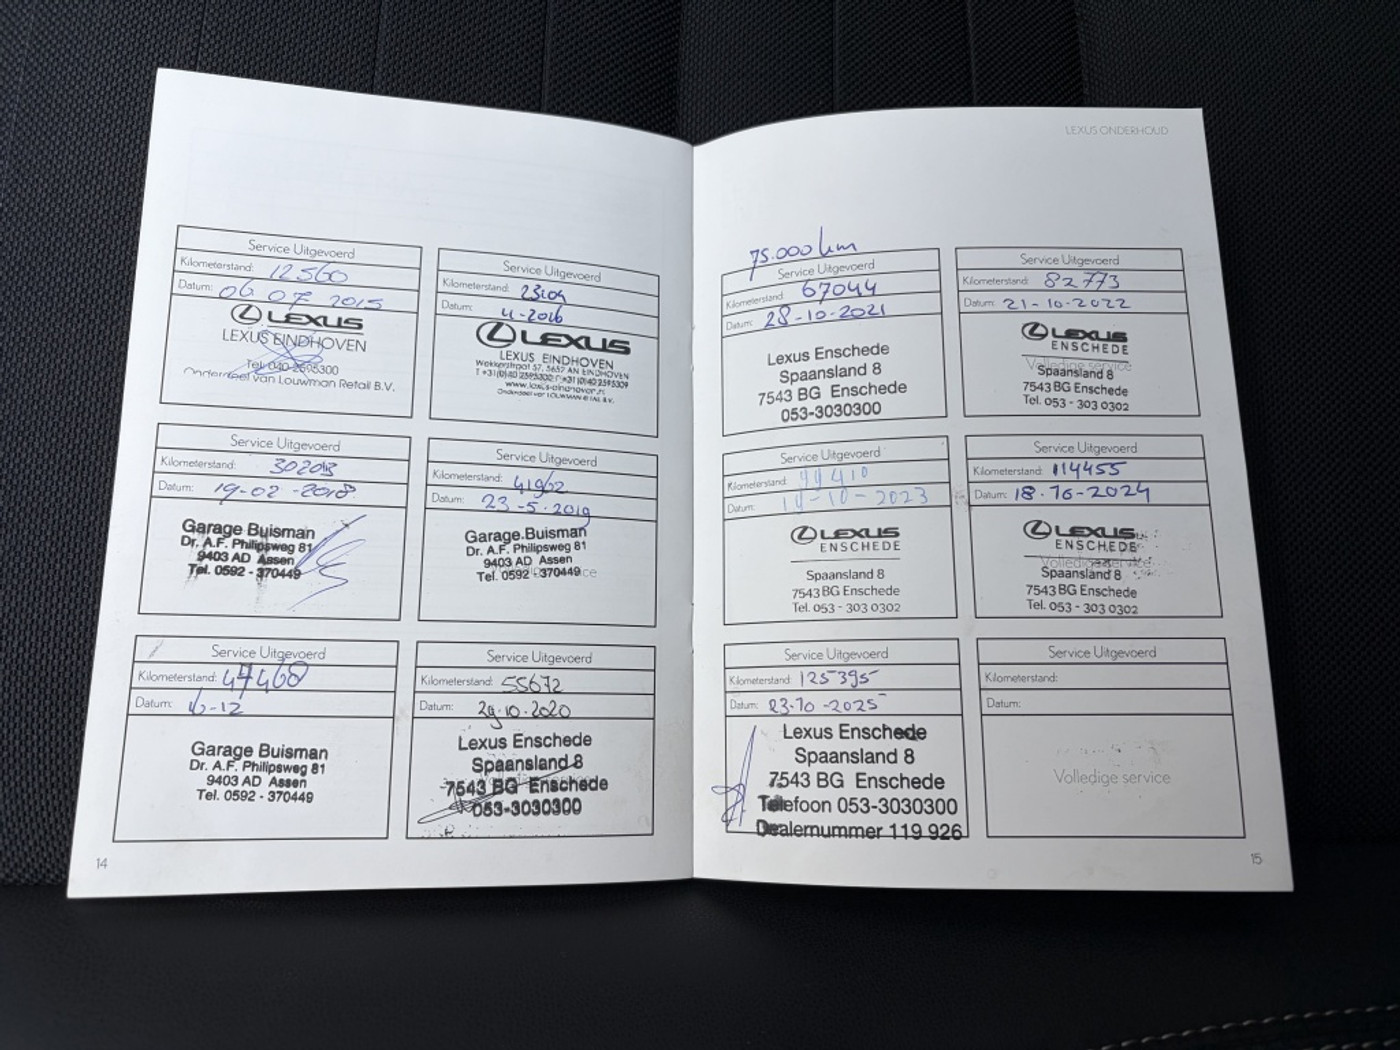 LEXUS ONDERHOUD
Service Uitgevoerd
Kilometerstand: 12560
Datum: 06 07 2015
LEXUS
LEXUS EINDHOVEN
Tel. 040 2595300
Onderdeel van Louwman Retail B.V.
Service Uitgevoerd
Kilometerstand:
Datum: 4-2016
LEXUS
LEXUS EINDHOVEN
Wekkerstraat 57, 5652 AN EINDHOVEN
www.lexus-eindhoven.nl
Onderdeel van LOUWMAN RETAIL B.V.
Service Uitgevoerd
Kilometerstand:
Datum: 19-02-2018
Garage Buisman
Dr. A.F. Philipsweg 81
9403 AD Assen
Tel. 0592 - 370449
Service Uitgevoerd
Kilometerstand: 41962
Datum: 23-5-2019
Garage Buisman
Dr. A.F. Philipsweg 81
9403 AD Assen
Tel. 0592 - 370449
Service Uitgevoerd
Kilometerstand: 47460
Datum: 16-12
Garage Buisman
Dr. A.F. Philipsweg 81
9403 AD Assen
Tel. 0592 - 370449
Service Uitgevoerd
Kilometerstand: 55672
Datum: 29.10.2020
Lexus Enschede
Spaansland 8
7543 BG Enschede
053-3030300
14
75.000 km
Service Uitgevoerd
Kilometerstand: 67044
Datum: 28-10-2021
Lexus Enschede
Spaansland 8
7543 BG Enschede
053-3030300
Service Uitgevoerd
Kilometerstand: 82773
Datum: 21-10-2022
LEXUS
ENSCHEDE
Volledige service
Spaansland 8
7543 BG Enschede
Tel. 053 - 303 0302
Service Uitgevoerd
Kilometerstand: 99410
Datum: 19-10-2023
LEXUS
ENSCHEDE
Spaansland 8
7543 BG Enschede
Tel. 053 - 303 0302
Service Uitgevoerd
Kilometerstand: 114455
Datum: 18-10-2024
LEXUS
ENSCHEDE
Volledige service
Spaansland 8
7543 BG Enschede
Tel. 053 - 303 0302
Service Uitgevoerd
Kilometerstand: 125395
Datum: 23-10-2025
Lexus Enschede
Spaansland 8
7543 BG Enschede
Telefoon 053-3030300
Dealernummer 119 926
Service Uitgevoerd
Kilometerstand:
Datum:
Volledige service
15